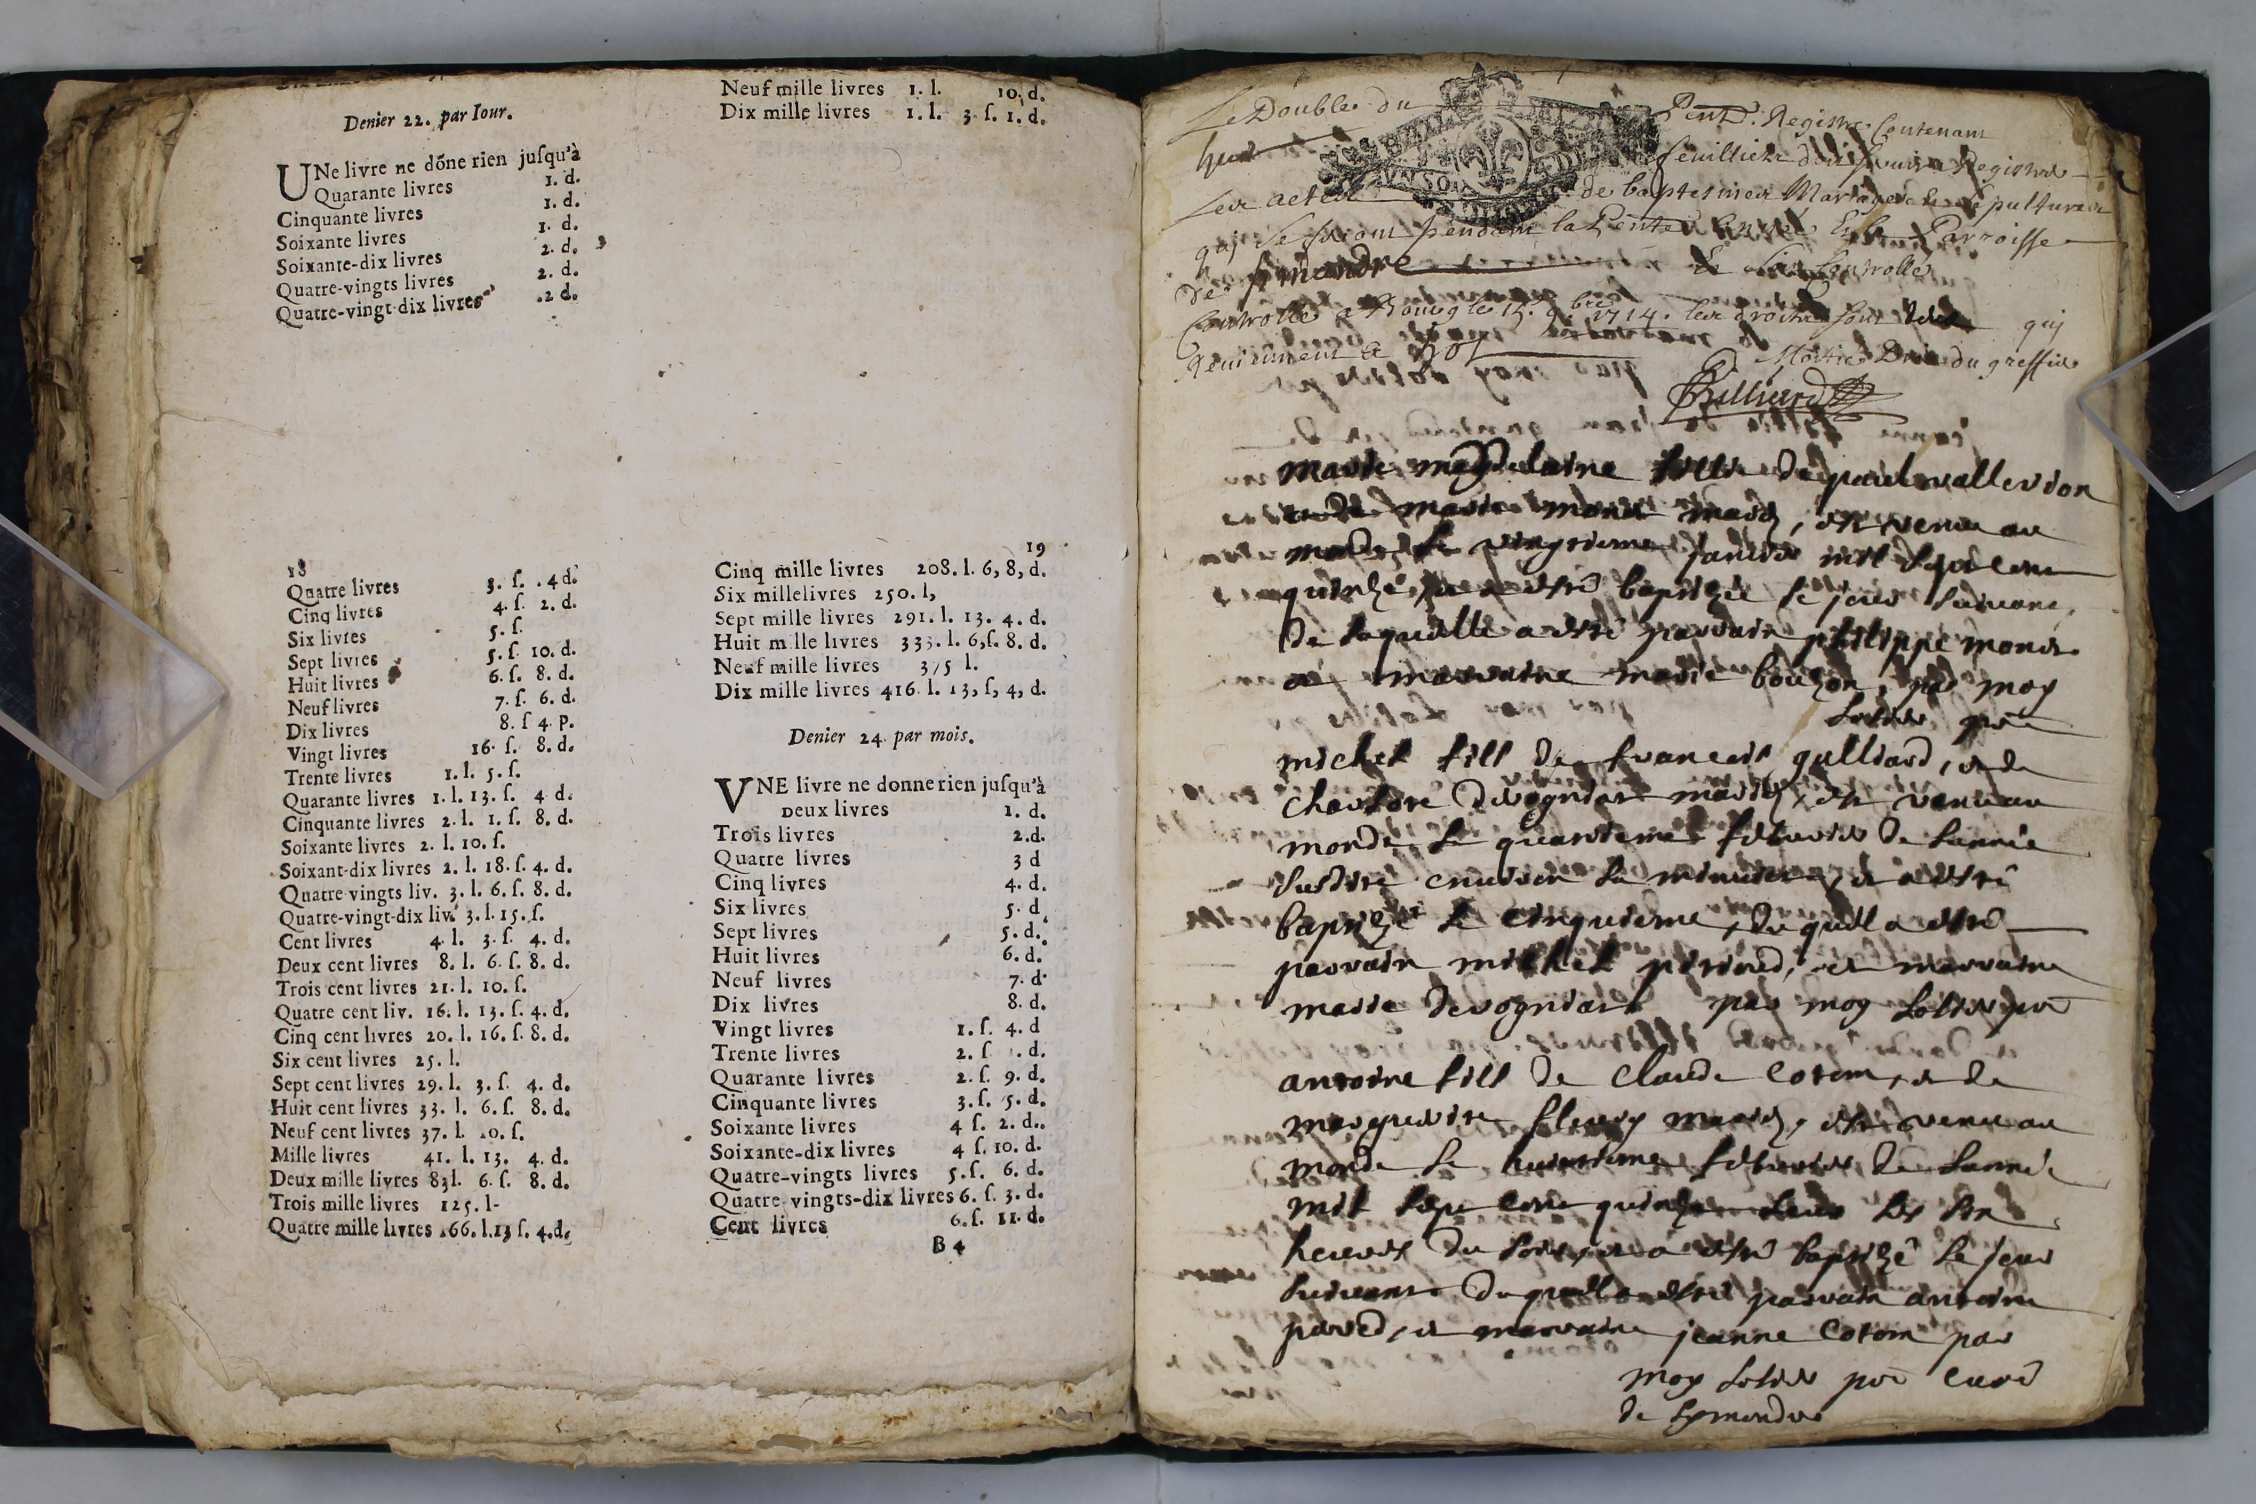 Denier 22. par Iour.
UNe livre ne dône rien juſqu'à
Quarante livres 1. d.
Cinquante livres 1. d.
Soixante livres 1. d.
Soixante-dix livres 2. d.
Quatre-vingts livres 2. d.
Quatre-vingt-dix livres .2 d.
Neuf mille livres 1. l. 10. d.
Dix mille livres 1. l. 3. ſ. 1. d.
18
Quatre livres 3. ſ. . 4 d.
Cinq livres 4. ſ. 2. d.
Six livres 5. ſ.
Sept livres 5. ſ. 10. d.
Huit livres 6. ſ. 8. d.
Neuf livres 7. ſ. 6. d.
Dix livres 8. ſ 4. p.
Vingt livres 16. ſ. 8. d.
Trente livres 1. l. 5. ſ.
Quarante livres 1. l. 13. ſ. 4 d.
Cinquante livres 2. l. 1. ſ. 8. d.
Soixante livres 2. l. 10. ſ.
Soixant-dix livres 2. l. 18. ſ. 4. d.
Quatre-vingts liv. 3. l. 6. ſ. 8. d.
Quatre-vingt-dix liv. 3. l. 15. ſ.
Cent livres 4. l. 3. ſ. 4. d.
Deux cent livres 8. l. 6. ſ. 8. d.
Trois cent livres 21. l. 10. ſ.
Quatre cent liv. 16. l. 13. ſ. 4. d.
Cinq cent livres 20. l. 16. ſ. 8. d.
Six cent livres 25. l.
Sept cent livres 29. l. 3. ſ. 4. d.
Huit cent livres 33. l. 6. ſ. 8. d.
Neuf cent livres 37. l. 10. ſ.
Mille livres 41. l. 13. 4. d.
Deux mille livres 83l. 6. ſ. 8. d.
Trois mille livres 125. l-
Quatre mille livres 166. l. 13 ſ. 4. d.
19
Cinq mille livres 208. l. 6, 8, d.
Six millelivres 250. l,
Sept mille livres 291. l. 13. 4. d.
Huit mille livres 333. l. 6,ſ. 8. d.
Neuf mille livres 375 l.
Dix mille livres 416. l. 13, ſ, 4, d.
Denier 24. par mois.
VNE livre ne donne rien juſqu'à
Deux livres 1. d.
Trois livres 2.d.
Quatre livres 3 d
Cinq livres 4. d.
Six livres 5. d
Sept livres 5. d.
Huit livres 6. d.
Neuf livres 7. d.
Dix livres 8. d.
Vingt livres 1. ſ. 4. d
Trente livres 2. ſ . d.
Quarante livres 2. ſ. 9. d.
Cinquante livres 3. ſ. 5. d.
Soixante livres 4 ſ. 2. d.
Soixante-dix livres 4 ſ. 10. d.
Quatre-vingts livres 5. ſ. 6. d.
Quatre-vingts-dix livres 6. ſ. 3. d.
Cent livres 6. ſ. 11. d.
B 4
Le Double du Registre Contenant
huit feuillets
Les actes de baptesmes Mariages et Sepultures
qui se feront pendant la parroisse
de simandre
Controllé a Bourg le 15. 9.bre 1714. les droits sont deus qui
reviennent a
du greffier
Billiard
marie magdelaine fille de paul vallerdon
et de marie monet mariez, est venue au
monde le vingtieme janvier mil sept cent
quinze, et a estre baptizee le jour suivant,
de laquelle a estre parrain philippe monet
et marraine marie bouzon, par moy
michel fils de francois gulliard, et de
mariez, est venu au
monde le quatrieme febvrier de l'année
susdite environ la minuit, et a estre
baptizé le cinquieme, duquel a estre
parrain michel et marraine
marie par moy
antoine fils de claude cotom, et de
marguerite fleury mariez, est venu au
monde le huictieme febvrier de l'annee
mil sept cent quinze
heures du soir, et a estre baptizé le jour
suivant duquel a estre parrain antoine
et marraine jeanne cotom par
moy curé
de symandre